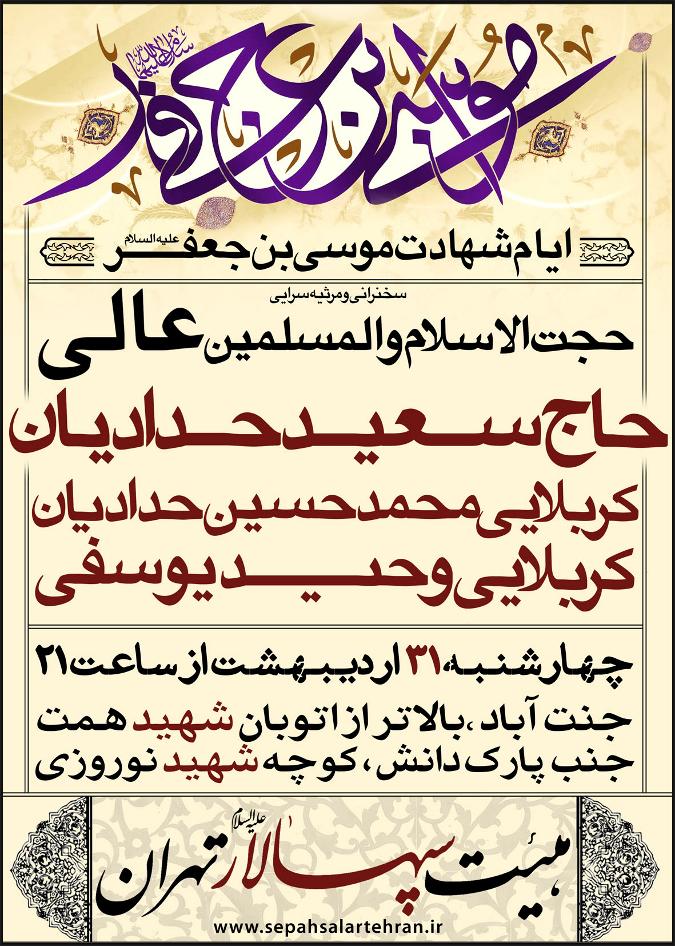 موسی بن جعفر
سلام الله علیهما
ایام شهادت موسی بن جعفر علیه السلام
سخنرانی و مرثیه سرایی
حجت الاسلام والمسلمین عالی
حاج سعید حدادیان
کربلایی محمد حسین حدادیان
کربلایی وحید یوسفی
چهارشنبه، ۳۱ اردیبهشت از ساعت ۲۱
جنت آباد، بالاتر از اتوبان شهید همت
جنب پارک دانش، کوچه شهید نوروزی
هیئت سپهسالار تهران
علیه السلام
www.sepahsalartehran.ir